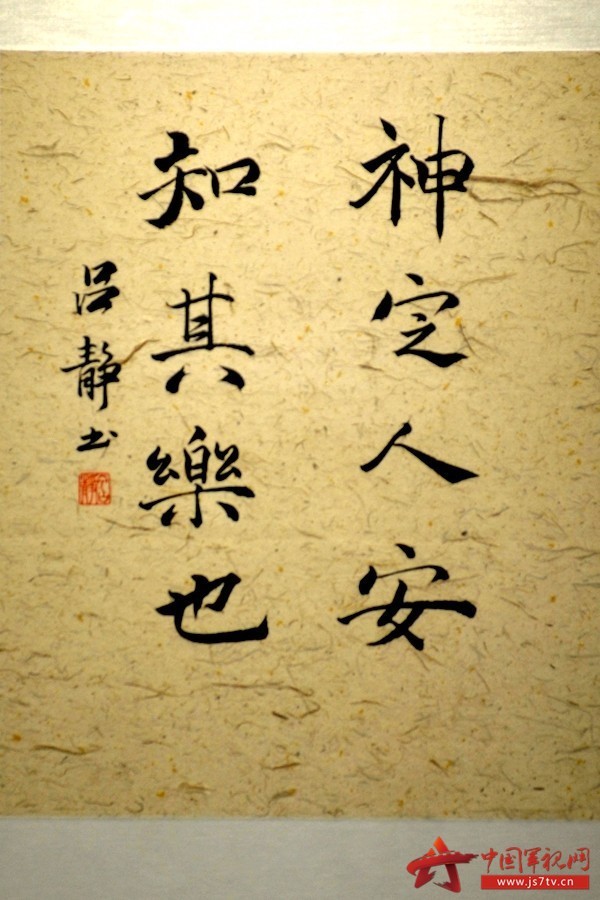 神定人安
知其樂也
吕靜书
中国军视网
www.js7tv.cn